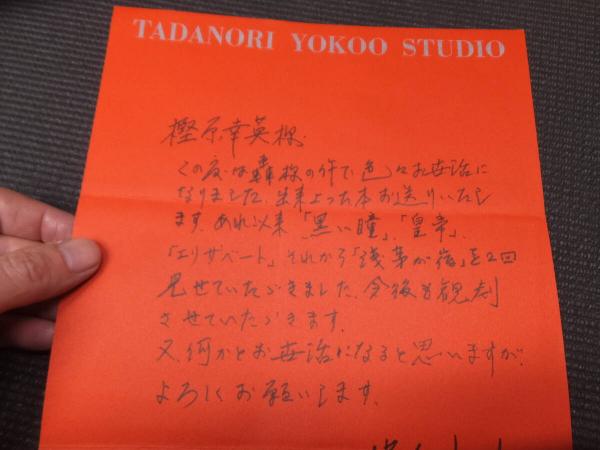 TADANORI YOKOO STUDIO
樫原幸英様
この度は轟様の件で色々お世話に
なりました。出来上った本お送りいたし
ます。あれ以来、「黒い瞳」、「皇帝」、
「エリザベート」それから「浅茅が宿」を2回
見せていただきました。今後も観劇
させていただきます。
又、何かとお世話になると思いますが、
よろしくお願いします。